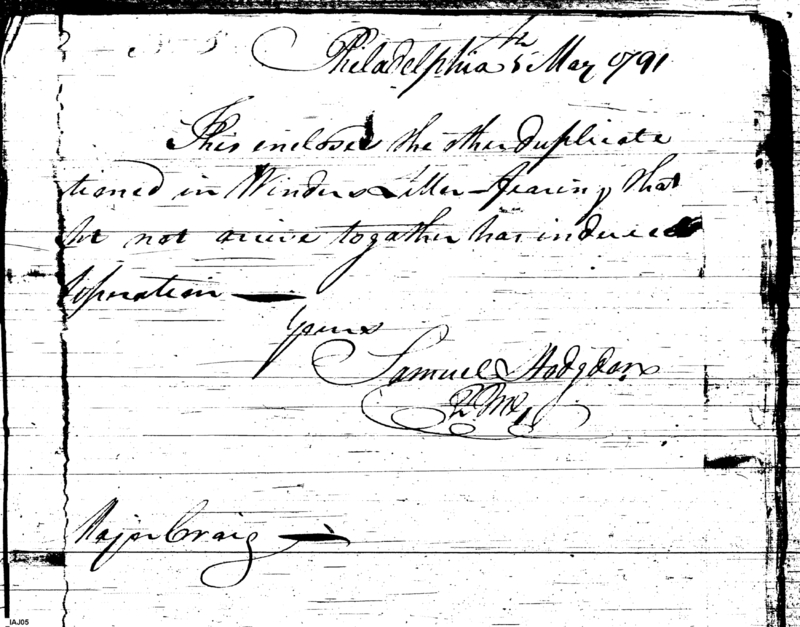 Philadelphia 5th May 1791
This encloses the other duplicate
tioned in Winders Letter – fearing that
ht not arrive together has induced
separation —
Yours
Samuel Hodgdon
QM
Major Craig —
_IAJ05